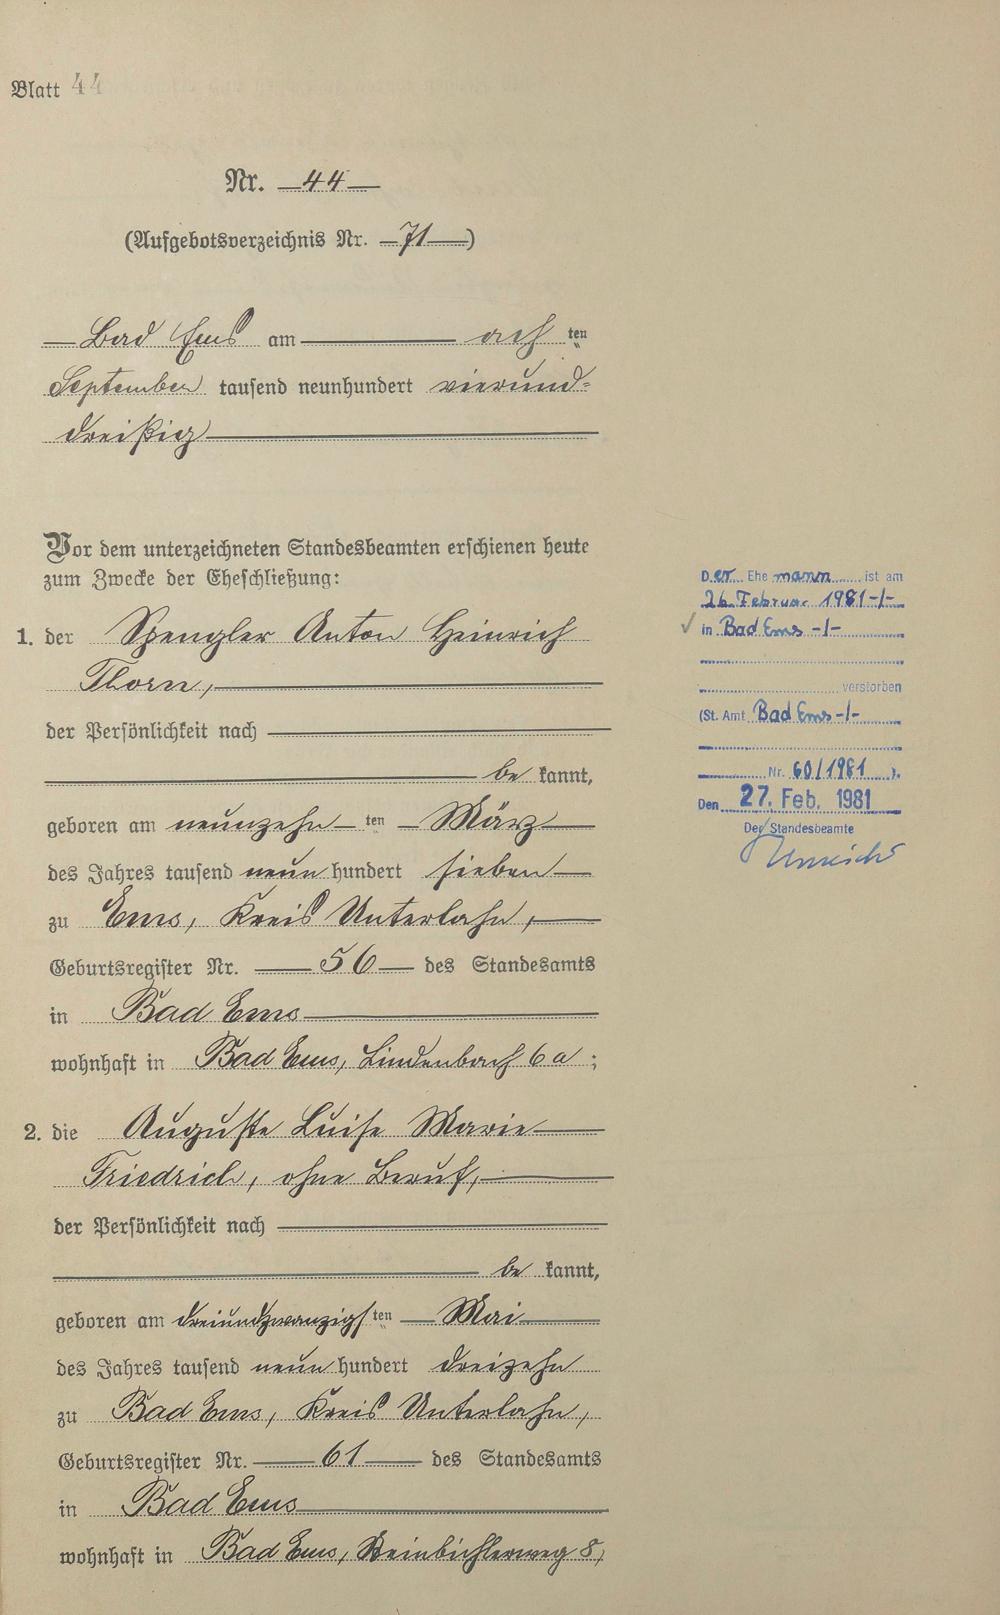 Blatt 44
Nr. 44
(Aufgebotsverzeichnis Nr. 71)
Bad Ems am ach ten
September tausend neunhundert vierund-
dreißig
Vor dem unterzeichneten Standesbeamten erschienen heute
zum Zwecke der Eheschließung:
1. der Spengler Anton Heinrich
Thorn,
der Persönlichkeit nach
be kannt,
geboren am neunzehn ten März
des Jahres tausend neun hundert sieben
zu Ems, Kreis Unterlahn,
Geburtsregister Nr. 56 des Standesamts
in Bad Ems
wohnhaft in Bad Ems, Lindenbach 6a;
2. die Auguste Luise Marie
Friedrich, ohne Beruf,
der Persönlichkeit nach
be kannt,
geboren am dreiundzwanzigs ten Mai
des Jahres tausend neun hundert dreizehn
zu Bad Ems, Kreis Unterlahn,
Geburtsregister Nr. 61 des Standesamts
in Bad Ems
wohnhaft in Bad Ems, 8,
Der Ehe mann ist am
26. Februar 1981 -/-
✓ in Bad Ems -/-
verstorben
(St. Amt Bad Ems -/-
Nr. 60/1981 ).
Den 27. Feb. 1981
Der Standesbeamte